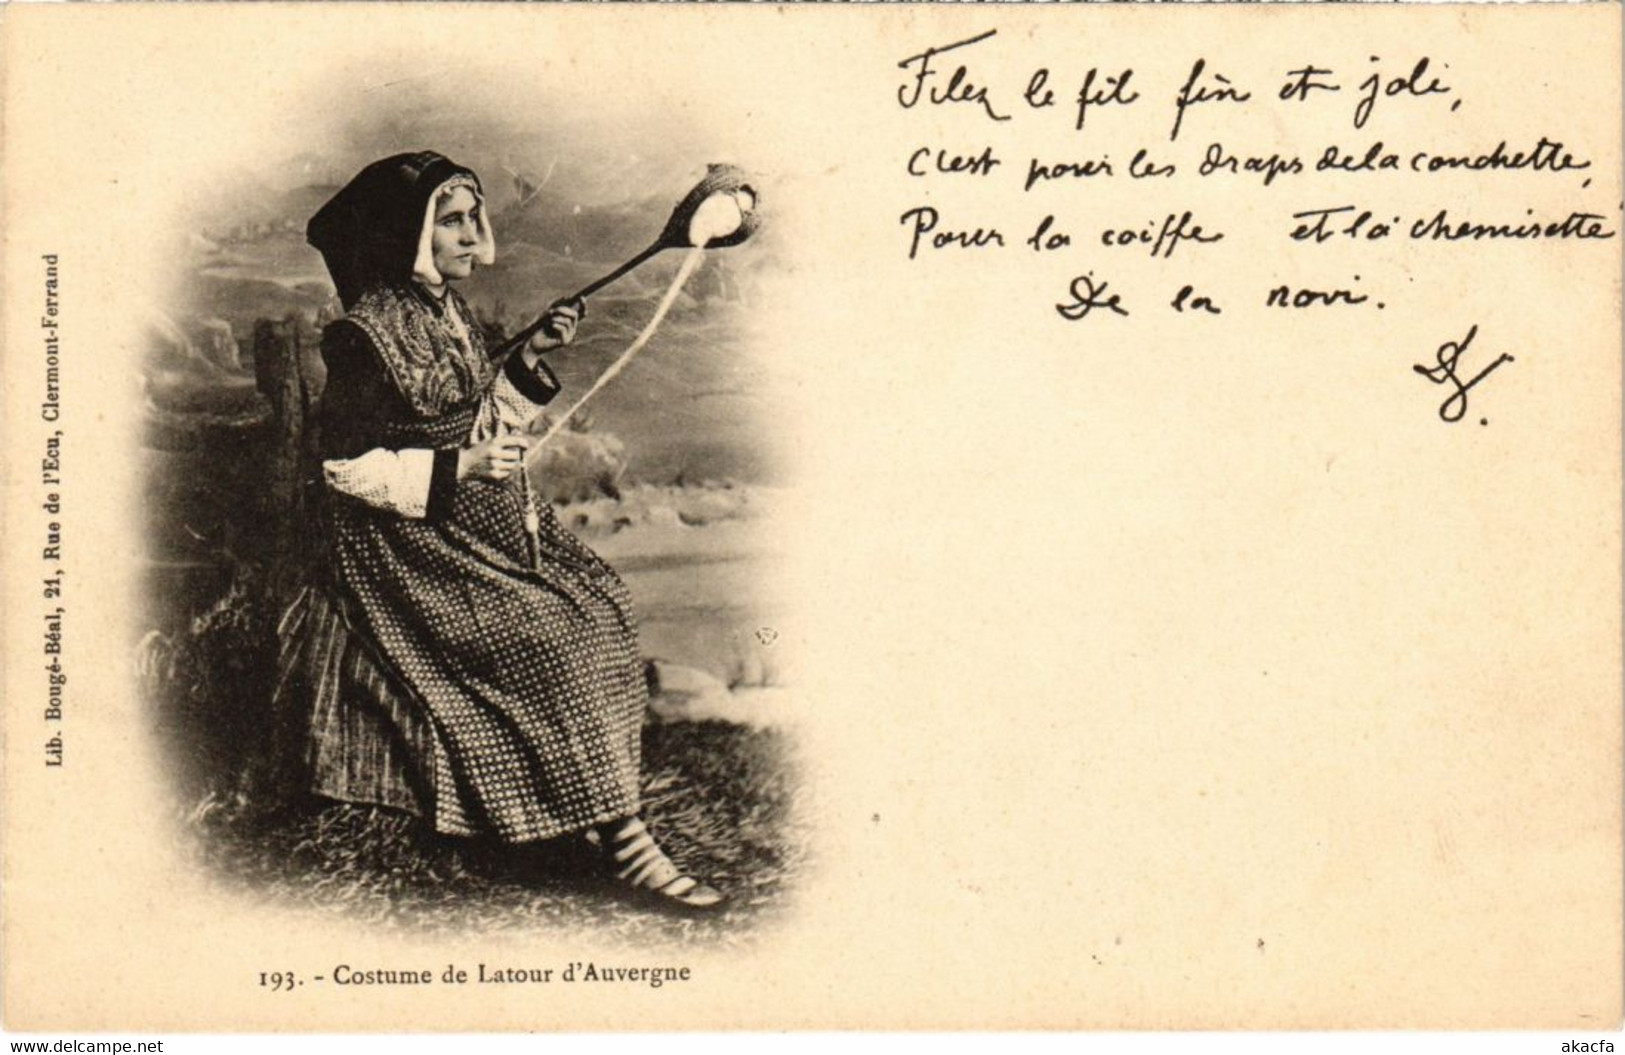 Filez le fil fin et joli,
C'est pour les draps de la couchette,
Pour la coiffe et la chemisette
De la novi.
Lib. Bougé-Béal, 21, Rue de l'Ecu, Clermont-Ferrand
193. - Costume de Latour d'Auvergne
www.delcampe.net
akacfa